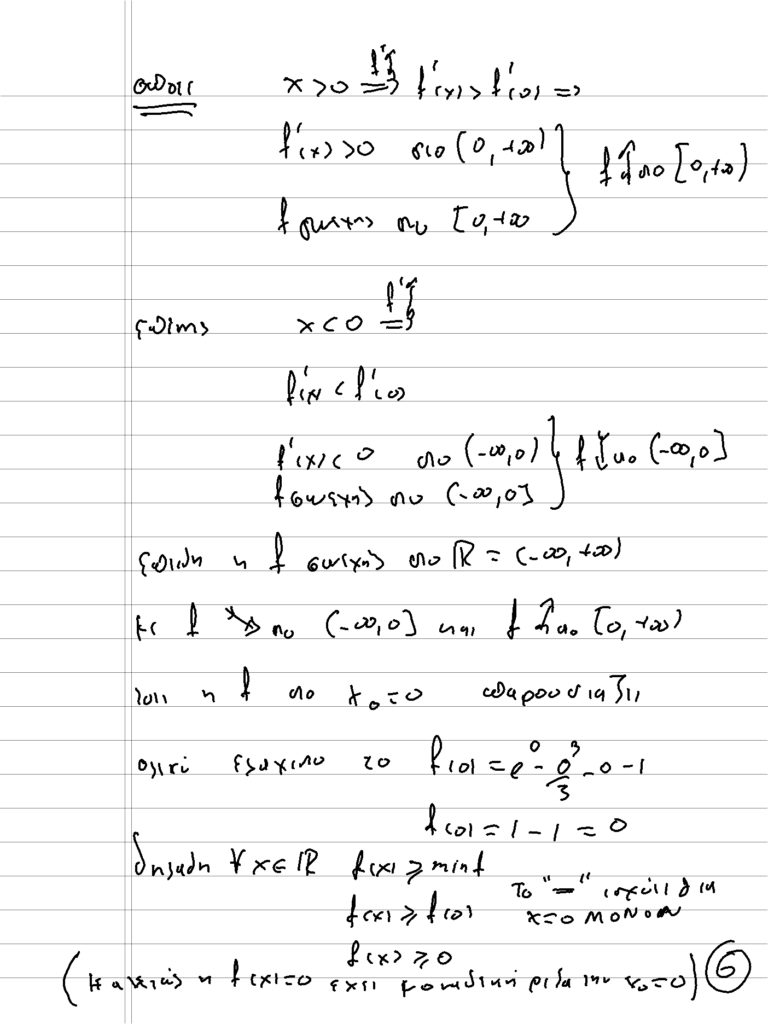 οπότε x > 0 f'↑ ⇒ f'(x) > f'(0) ⇒
f'(x) > 0 στο (0, +∞)
f ↑ στο [0, +∞)
f συνεχής στο [0, +∞
επίσης x < 0 f'↑ ⇒
f'(x) < f'(0)
f'(x) < 0 στο (-∞, 0) } f ↓ στο (-∞, 0]
f συνεχής στο (-∞, 0]
επειδή η f συνεχής στο ℝ = (-∞, +∞)
με f ↘ στο (-∞, 0] και f ↑ στο [0, +∞)
τότε η f στο x₀ = 0 παρουσιάζει
ολικό ελάχιστο το f(0) = e⁰ - 0³/3 - 0 - 1
f(0) = 1 - 1 = 0
δηλαδή ∀ x ∈ ℝ f(x) ≥ min f
Το "=" ισχύει για
f(x) ≥ f(0) x=0 ΜΟΝΟΝ
f(x) ≥ 0
( η f(x)=0 έχει μοναδική ρίζα την x₀=0) 6